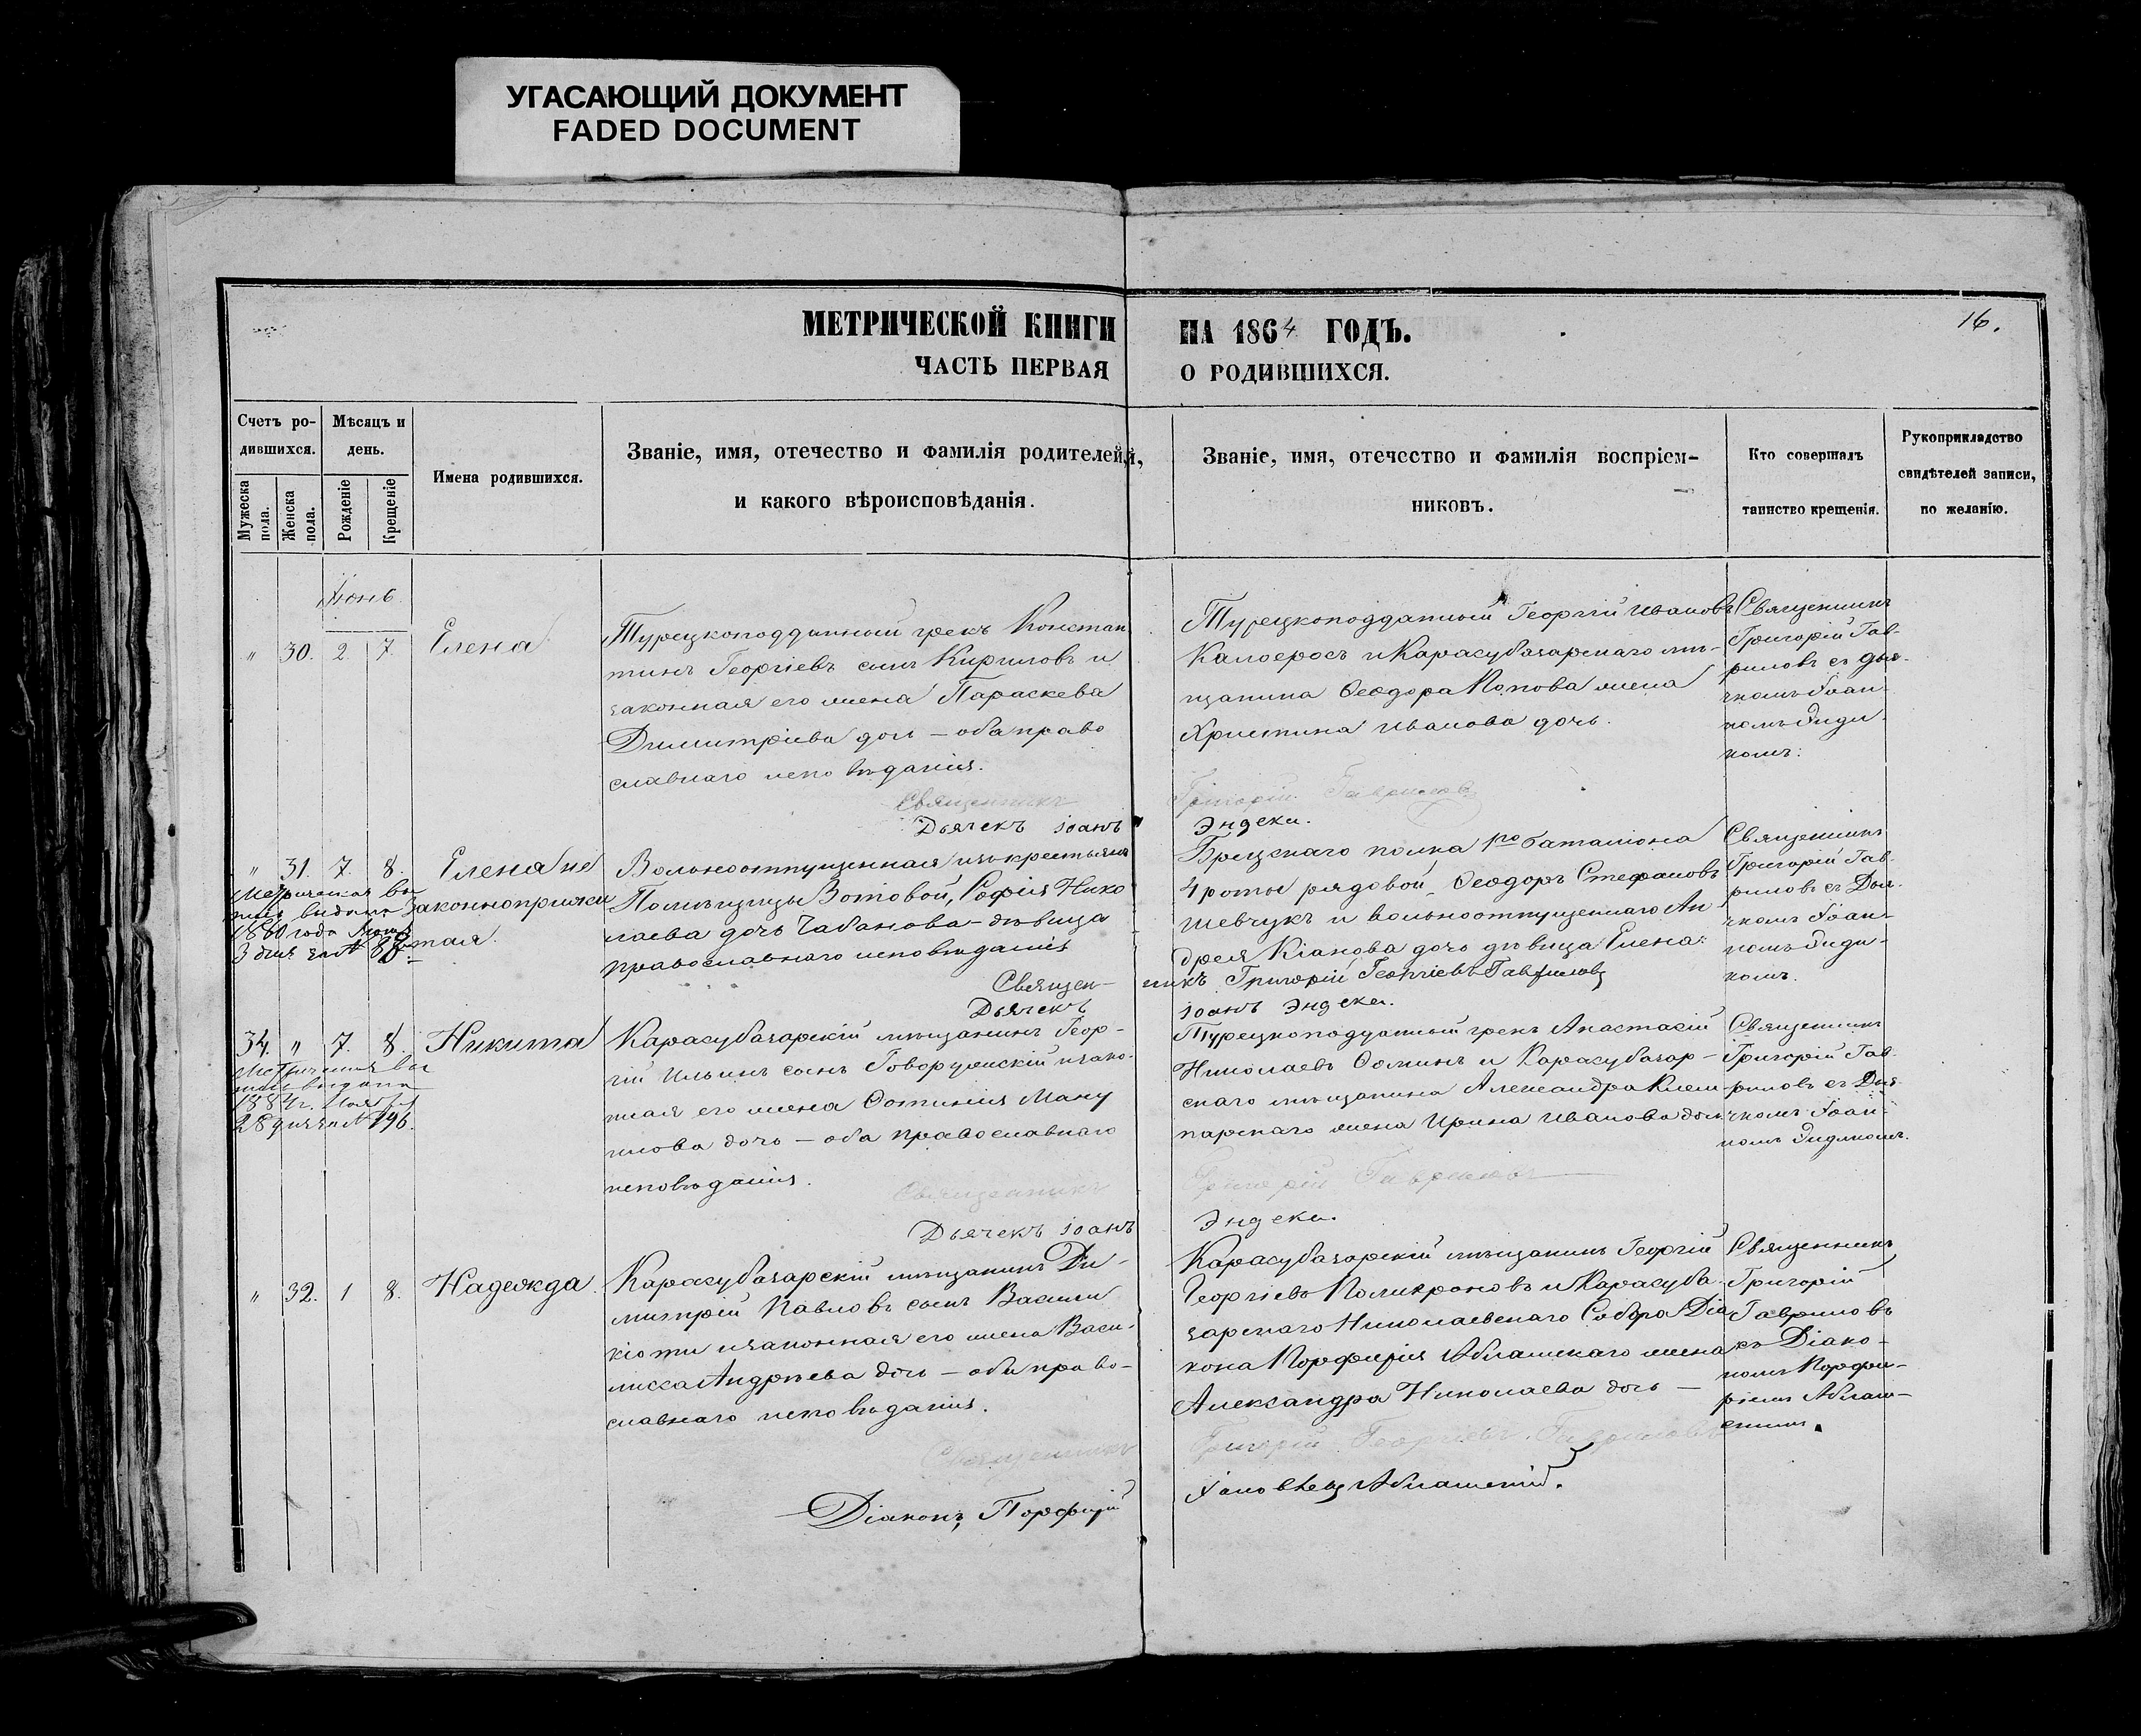 УГАСАЮЩИЙ ДОКУМЕНТ
FADED DOCUMENT
МЕТРИЧЕСКОЙ КНИГИ НА 1864 ГОДЪ.
16.
ЧАСТЬ ПЕРВАЯ О РОДИВШИХСЯ.
Счетъ ро-
дившихся.
Мужеска пола.
Женска пола.
Мѣсяцъ и
день.
Рожденіе
Крещеніе
Имена родившихся.
Званіе, имя, отечество и фамилія родителей,
и какого вѣроисповѣданія.
Званіе, имя, отечество и фамилія воспріем-
никовъ.
Кто совершалъ
таинство крещенія.
Рукоприкладство
свидѣтелей записи,
по желанію.
Іюнь.
" 30. 2. 7. Елена
Турецкоподданный грекъ Констан
тинъ Георгіевъ сынъ Кириловъ и
законная его жена Параскева
Димитріева дочь – оба право
славнаго исповѣданія.
Турецкоподданный Георгій Ивановъ
Калоеросъ и Карасубазарскаго мѣ-
щанина Ѳеодора Попова жена
Христина Иванова дочь.
Священникъ
Григорій Гав-
риловъ съ дья-
чкомъ Іоан-
номъ Энди
комъ.
Священникъ Григорій Гавриловъ
Дьячекъ іоанъ Эндеки.
" 31. 7. 8. Елена не
законноприжи
тая.
Метрическая вы
пись выдана
1880 года
3 дня за № 88
Вольноотпущенная изъ крестьянъ
Помѣщицы Зотовой, Софія Нико
лаева дочь Чабанова – дѣвица
православнаго исповѣданія
Брестскаго полка 1го баталіона
4 роты рядовой Ѳеодоръ Стефановъ
Шевчукъ и вольноотпущеннаго Ан
дрея Кіанова дочь дѣвица Елена.
Священникъ
Григорій Гав-
риловъ съ Дья-
чкомъ Іоан-
номъ Энди-
комъ.
Священникъ Григорій Георгіевъ Гавриловъ
Дьячекъ іоанъ Эндеки.
34. " 7. 8. Никита
Метрическая вы
пись выдана
1884 г.
28 дня за № 196.
Карасубазарскій мѣщанинъ Геор-
гій Ильинъ сынъ Говорунскій и зако-
нная его жена Фотинія Ману
илова дочь – оба православнаго
исповѣданія.
Турецкоподданный грекъ Анастасій
Николаевъ Ѳоминъ и Карасубазар-
скаго мѣщанина Александра
жена Ирина Иванова дочь
Священникъ
Григорій Гав-
риловъ съ Дья-
чкомъ Іоан-
номъ Эндикомъ.
Священникъ Григорій Гавриловъ
Дьячекъ іоанъ Эндеки.
" 32. 1 8. Надежда.
Карасубазарскій мѣщанинъ Ди-
митрій Павловъ сынъ Васили
кіоти и законная его жена Васи-
лисса Андреева дочь – оба право-
славнаго исповѣданія.
Карасубазарскій мѣщанинъ Георгій
Георгіевъ Поликроновъ и Карасуба-
зарскаго Николаевскаго Собора Діа
кона Порфирія Аблашскаго жена
Александра Николаева дочь –
Священникъ
Григорій
Гавриловъ
съ Діако-
номъ Порфи-
ріемъ Аблаш-
скимъ.
Священникъ Григорій Георгіевъ Гавриловъ
Діаконъ, Порфирій Аблашскій.